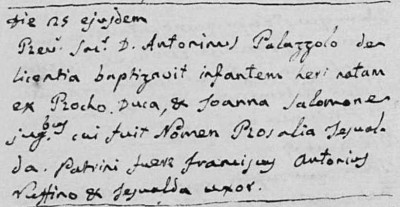 Die 25 ejusdem
Rev: Sac: D. Antoninus Palazzolo de
licentia baptizavit infantem heri natam
ex Rocho Duca, & Joanna Salomone
jug:bus cui fuit Nomen Rosalia Jesual-
da. Patrini fuere Franciscus Antonius
Ruffino & Jesualda uxor.